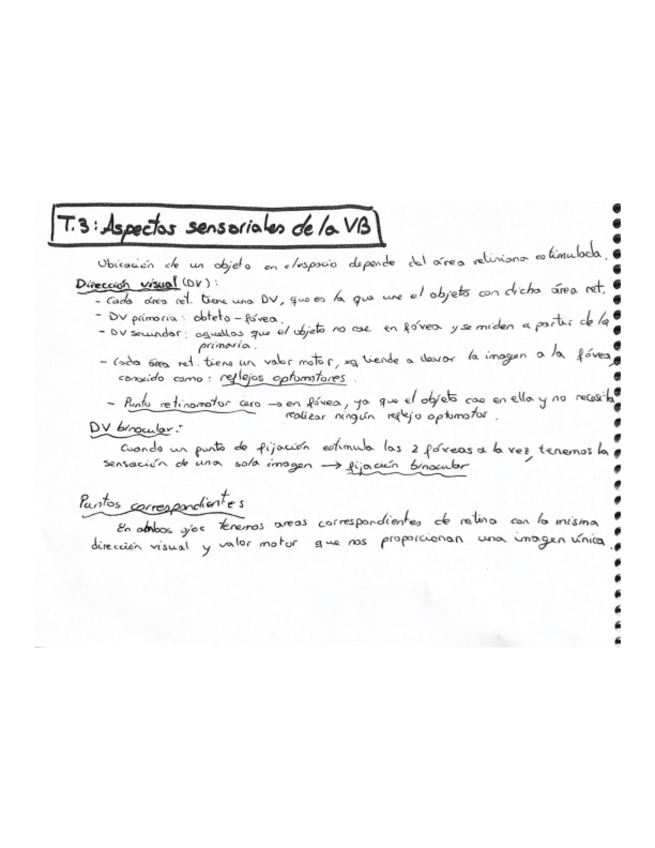 T.3: Aspectos sensoriales de la VB
Ubicación de un objeto en el espacio depende del área retiniana estimulada.
Dirección visual (DV):
- Cada área ret. tiene una DV, que es la que une el objeto con dicha área ret.
- DV primaria: obteto - fóvea.
- DV secundar: aquellas que el objeto no cae en fóvea y se miden a partir de la
primaria.
- Cada área ret. tiene un valor motor, xq tiende a llevar la imagen a la fóvea,
conocido como: reflejos optomotores.
- Punto retinomotor cero → en fóvea, ya que el objeto cae en ella y no necesita
realizar ningún reflejo optomotor.
DV binocular:
Cuando un punto de fijación estimula las 2 fóveas a la vez, tenemos la
sensación de una sola imagen → fijación binocular
Puntos correspondientes
En ambos ojos tenemos areas correspondientes de retina con la misma
dirección visual y valor motor que nos proporcionan una imagen única.